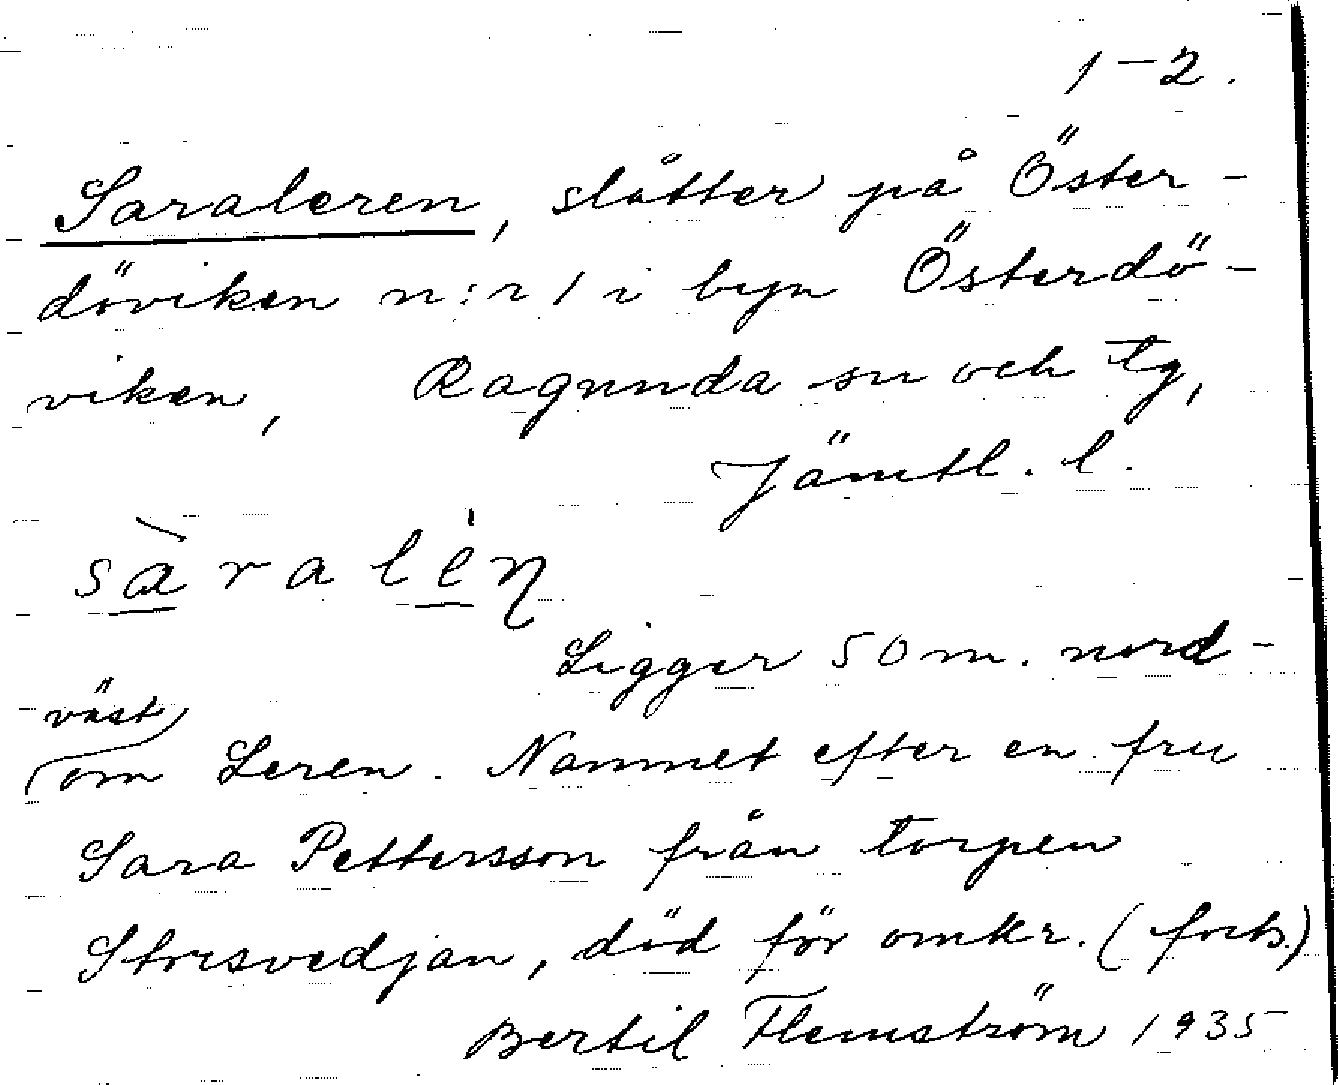 1-2.
Saraleren, slåtter på Öster-
döviken n:r 1 i byn Österdö-
viken, Ragunda sn och tg,
Jämtl. l.
sàralèṇ
Ligger 50 m. nord-
väst
om Leren. Namnet efter en fru
Sara Pettersson från torpen
Storsvedjan, död för omkr. (forts.)
Bertil Flemström 1935